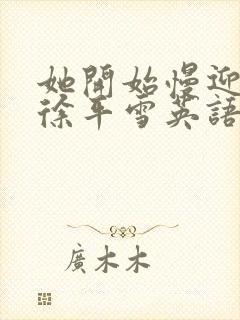 她開始慢迎
徐平雪英語
廣木木